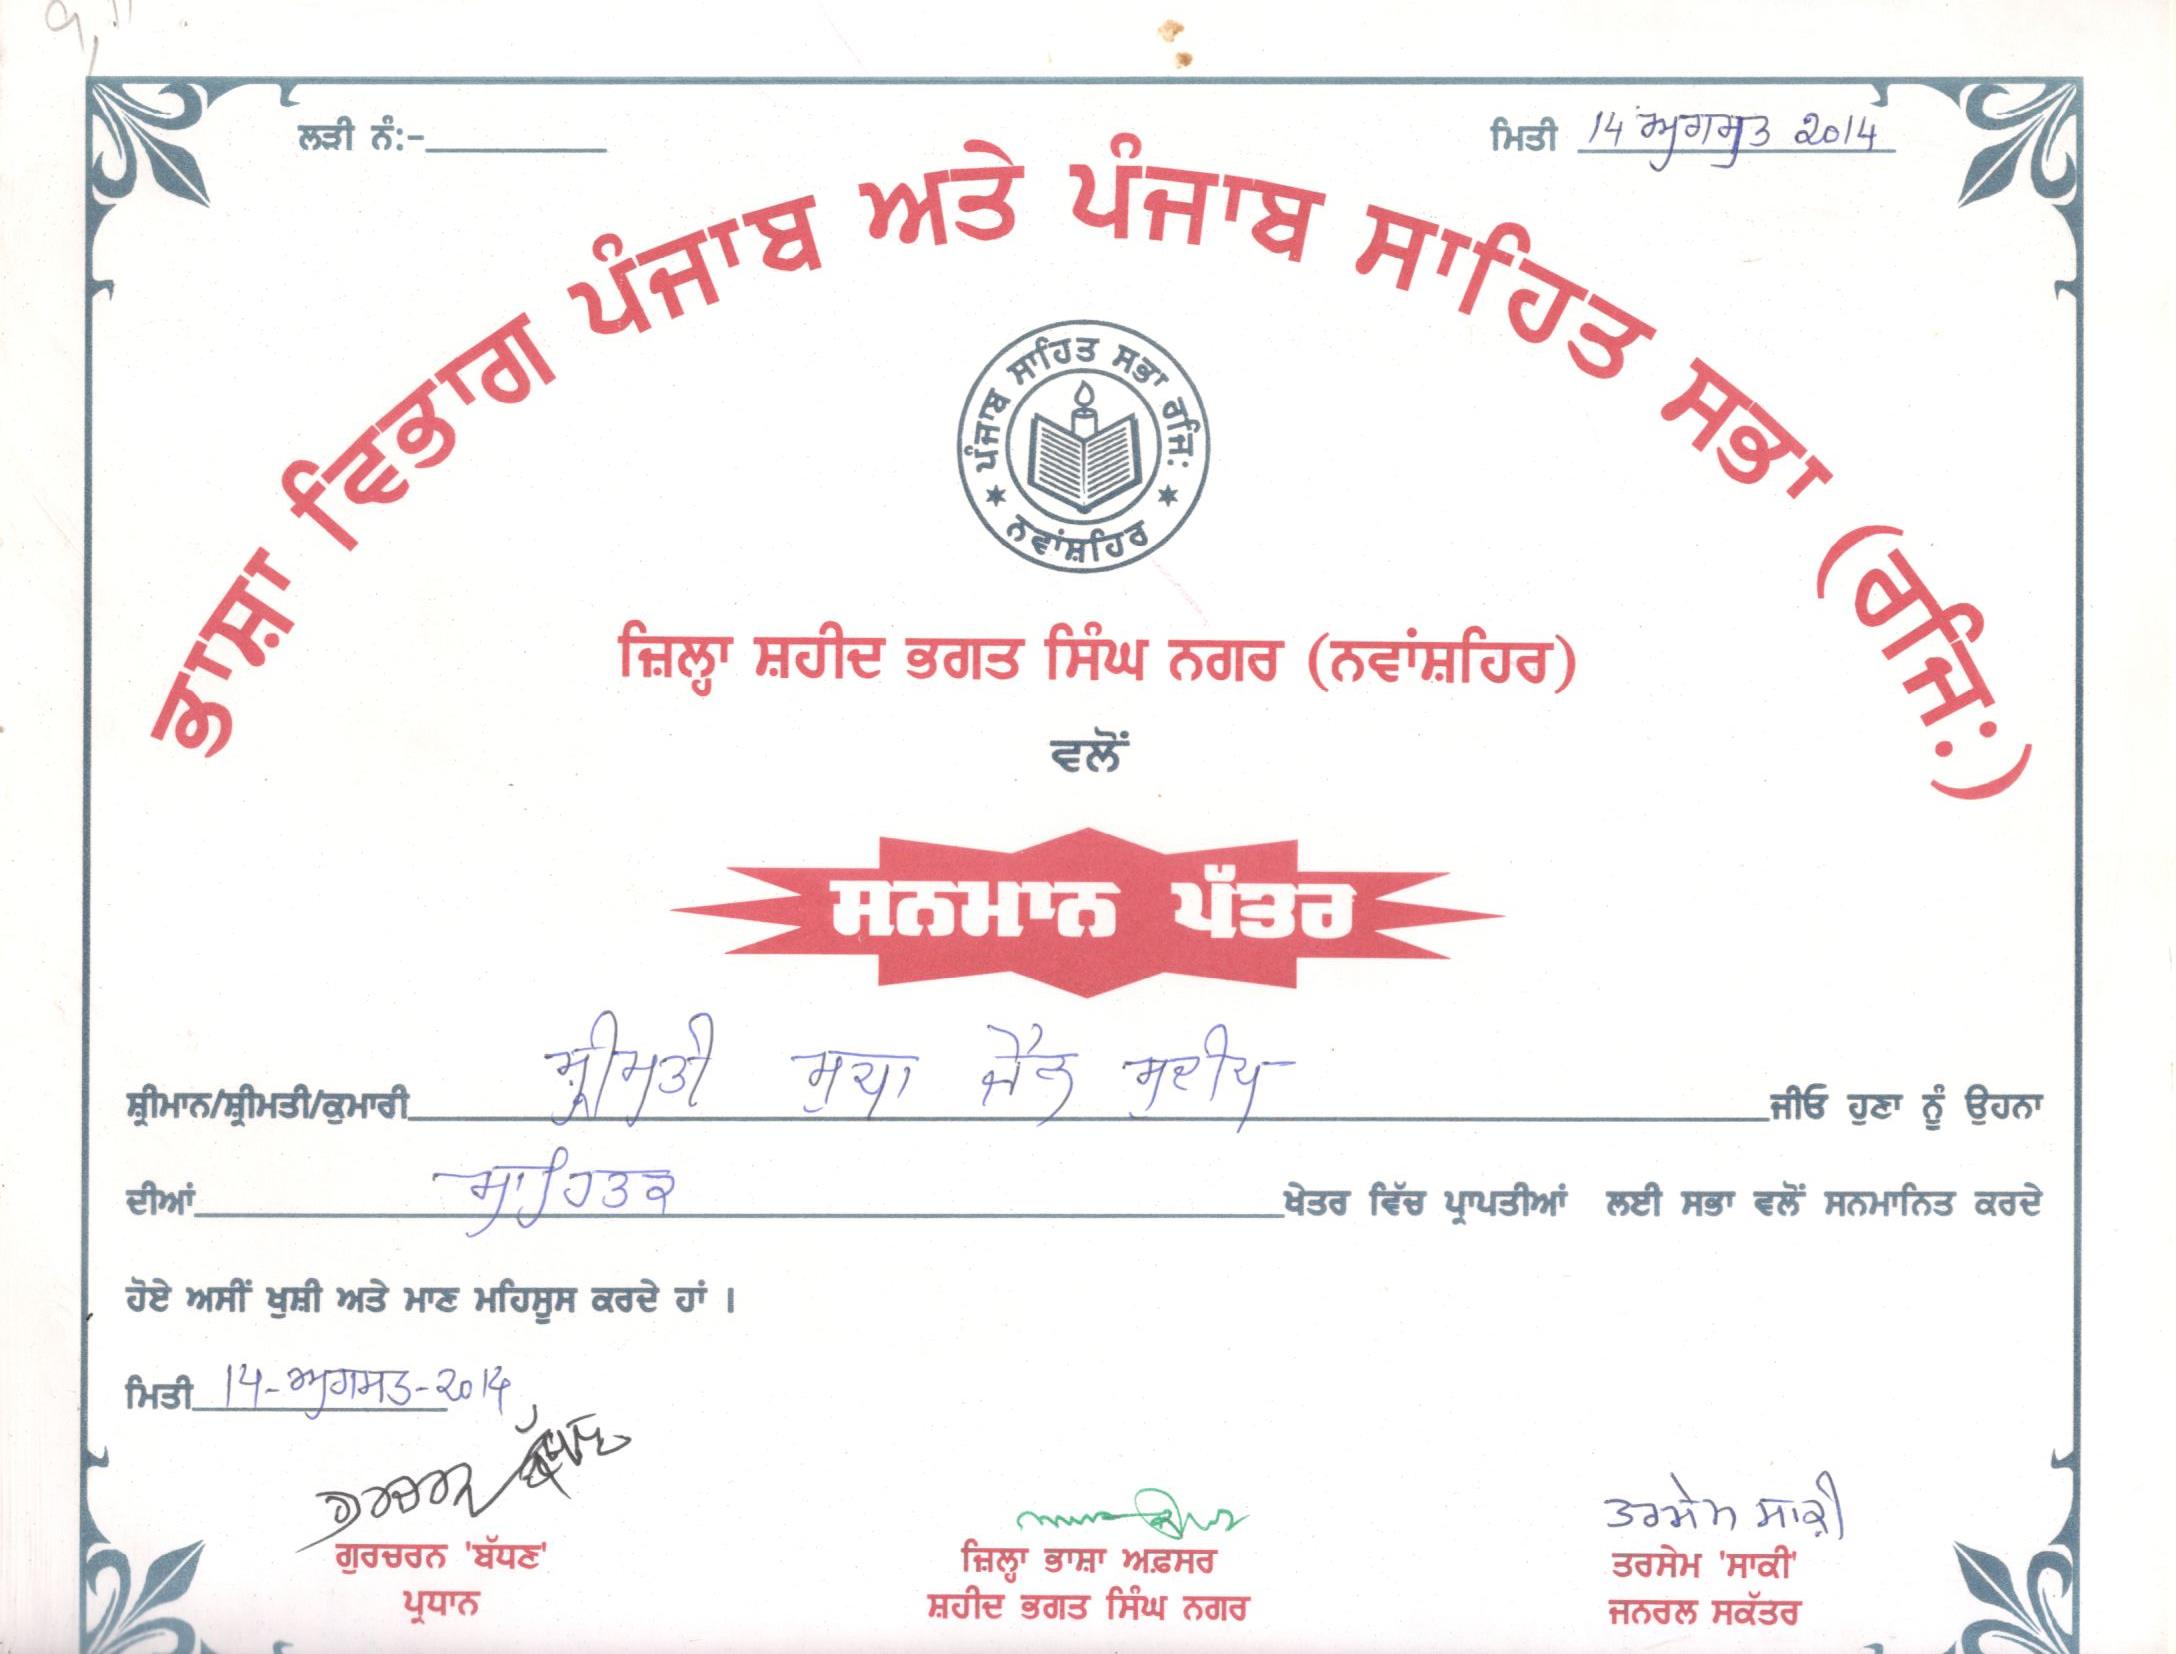 ਲੜੀ ਨੰ:-
ਮਿਤੀ 14 ਅਗਸਤ 2014
ਭਾਸ਼ਾ ਵਿਭਾਗ ਪੰਜਾਬ ਅਤੇ ਪੰਜਾਬ ਸਾਹਿਤ ਸਭਾ (ਰਜਿ:)
ਪੰਜਾਬ ਸਾਹਿਤ ਸਭਾ ਰਜਿ:
ਨਵਾਂਸ਼ਹਿਰ
ਜ਼ਿਲ੍ਹਾ ਸ਼ਹੀਦ ਭਗਤ ਸਿੰਘ ਨਗਰ (ਨਵਾਂਸ਼ਹਿਰ)
ਵਲੋਂ
ਸਨਮਾਨ ਪੱਤਰ
ਸ਼੍ਰੀਮਾਨ/ਸ਼੍ਰੀਮਤੀ/ਕੁਮਾਰੀ ਸ਼੍ਰੀਮਤੀ ਸੁਧਾ ਜੈਨ ਸੁਦੀਪ ਜੀਓ ਹੁਣਾ ਨੂੰ ਉਹਨਾ
ਦੀਆਂ ਸਾਹਿਤਕ ਖੇਤਰ ਵਿੱਚ ਪ੍ਰਾਪਤੀਆਂ ਲਈ ਸਭਾ ਵਲੋਂ ਸਨਮਾਨਿਤ ਕਰਦੇ
ਹੋਏ ਅਸੀਂ ਖੁਸ਼ੀ ਅਤੇ ਮਾਣ ਮਹਿਸੂਸ ਕਰਦੇ ਹਾਂ ।
ਮਿਤੀ 14-ਅਗਸਤ-2014
ਗੁਰਚਰਨ ਬੱਧਣ
ਤਰਸੇਮ ਸਾਕੀ
ਗੁਰਚਰਨ 'ਬੱਧਣ'
ਪ੍ਰਧਾਨ
ਜ਼ਿਲ੍ਹਾ ਭਾਸ਼ਾ ਅਫ਼ਸਰ
ਸ਼ਹੀਦ ਭਗਤ ਸਿੰਘ ਨਗਰ
ਤਰਸੇਮ 'ਸਾਕੀ'
ਜਨਰਲ ਸਕੱਤਰ